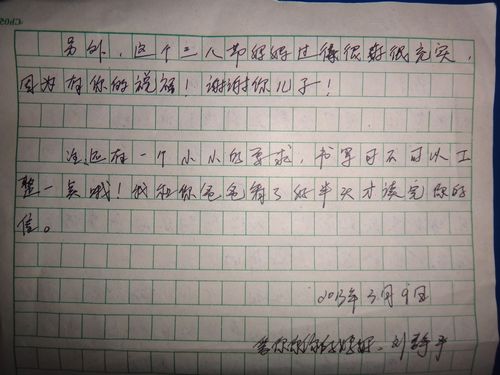 另外，这个三八节妈妈过得很好很充实，
因为有你的祝福！谢谢你儿子！
还有一个小小的要求，书写可不可以工
整一点哦！我和你爸爸看了好半天才读完你的
信。
2013年3月9日
你的妈妈：刘